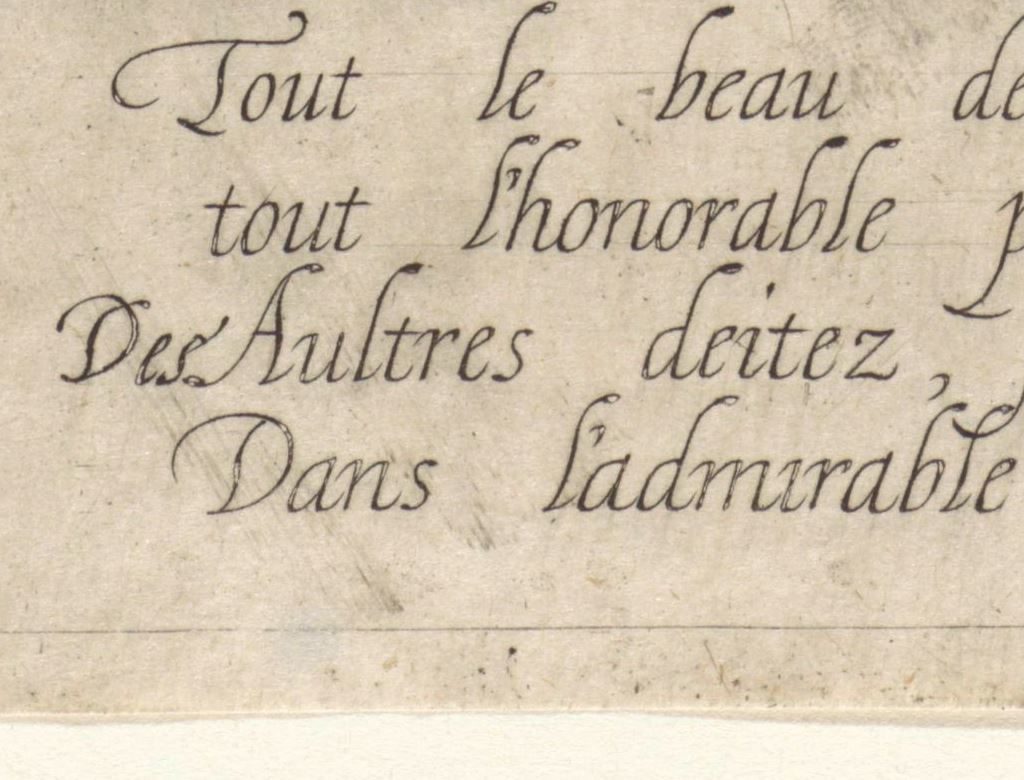 Tout le beau de
tout l'honorable p
Des Aultres deitez,
Dans l'admirable